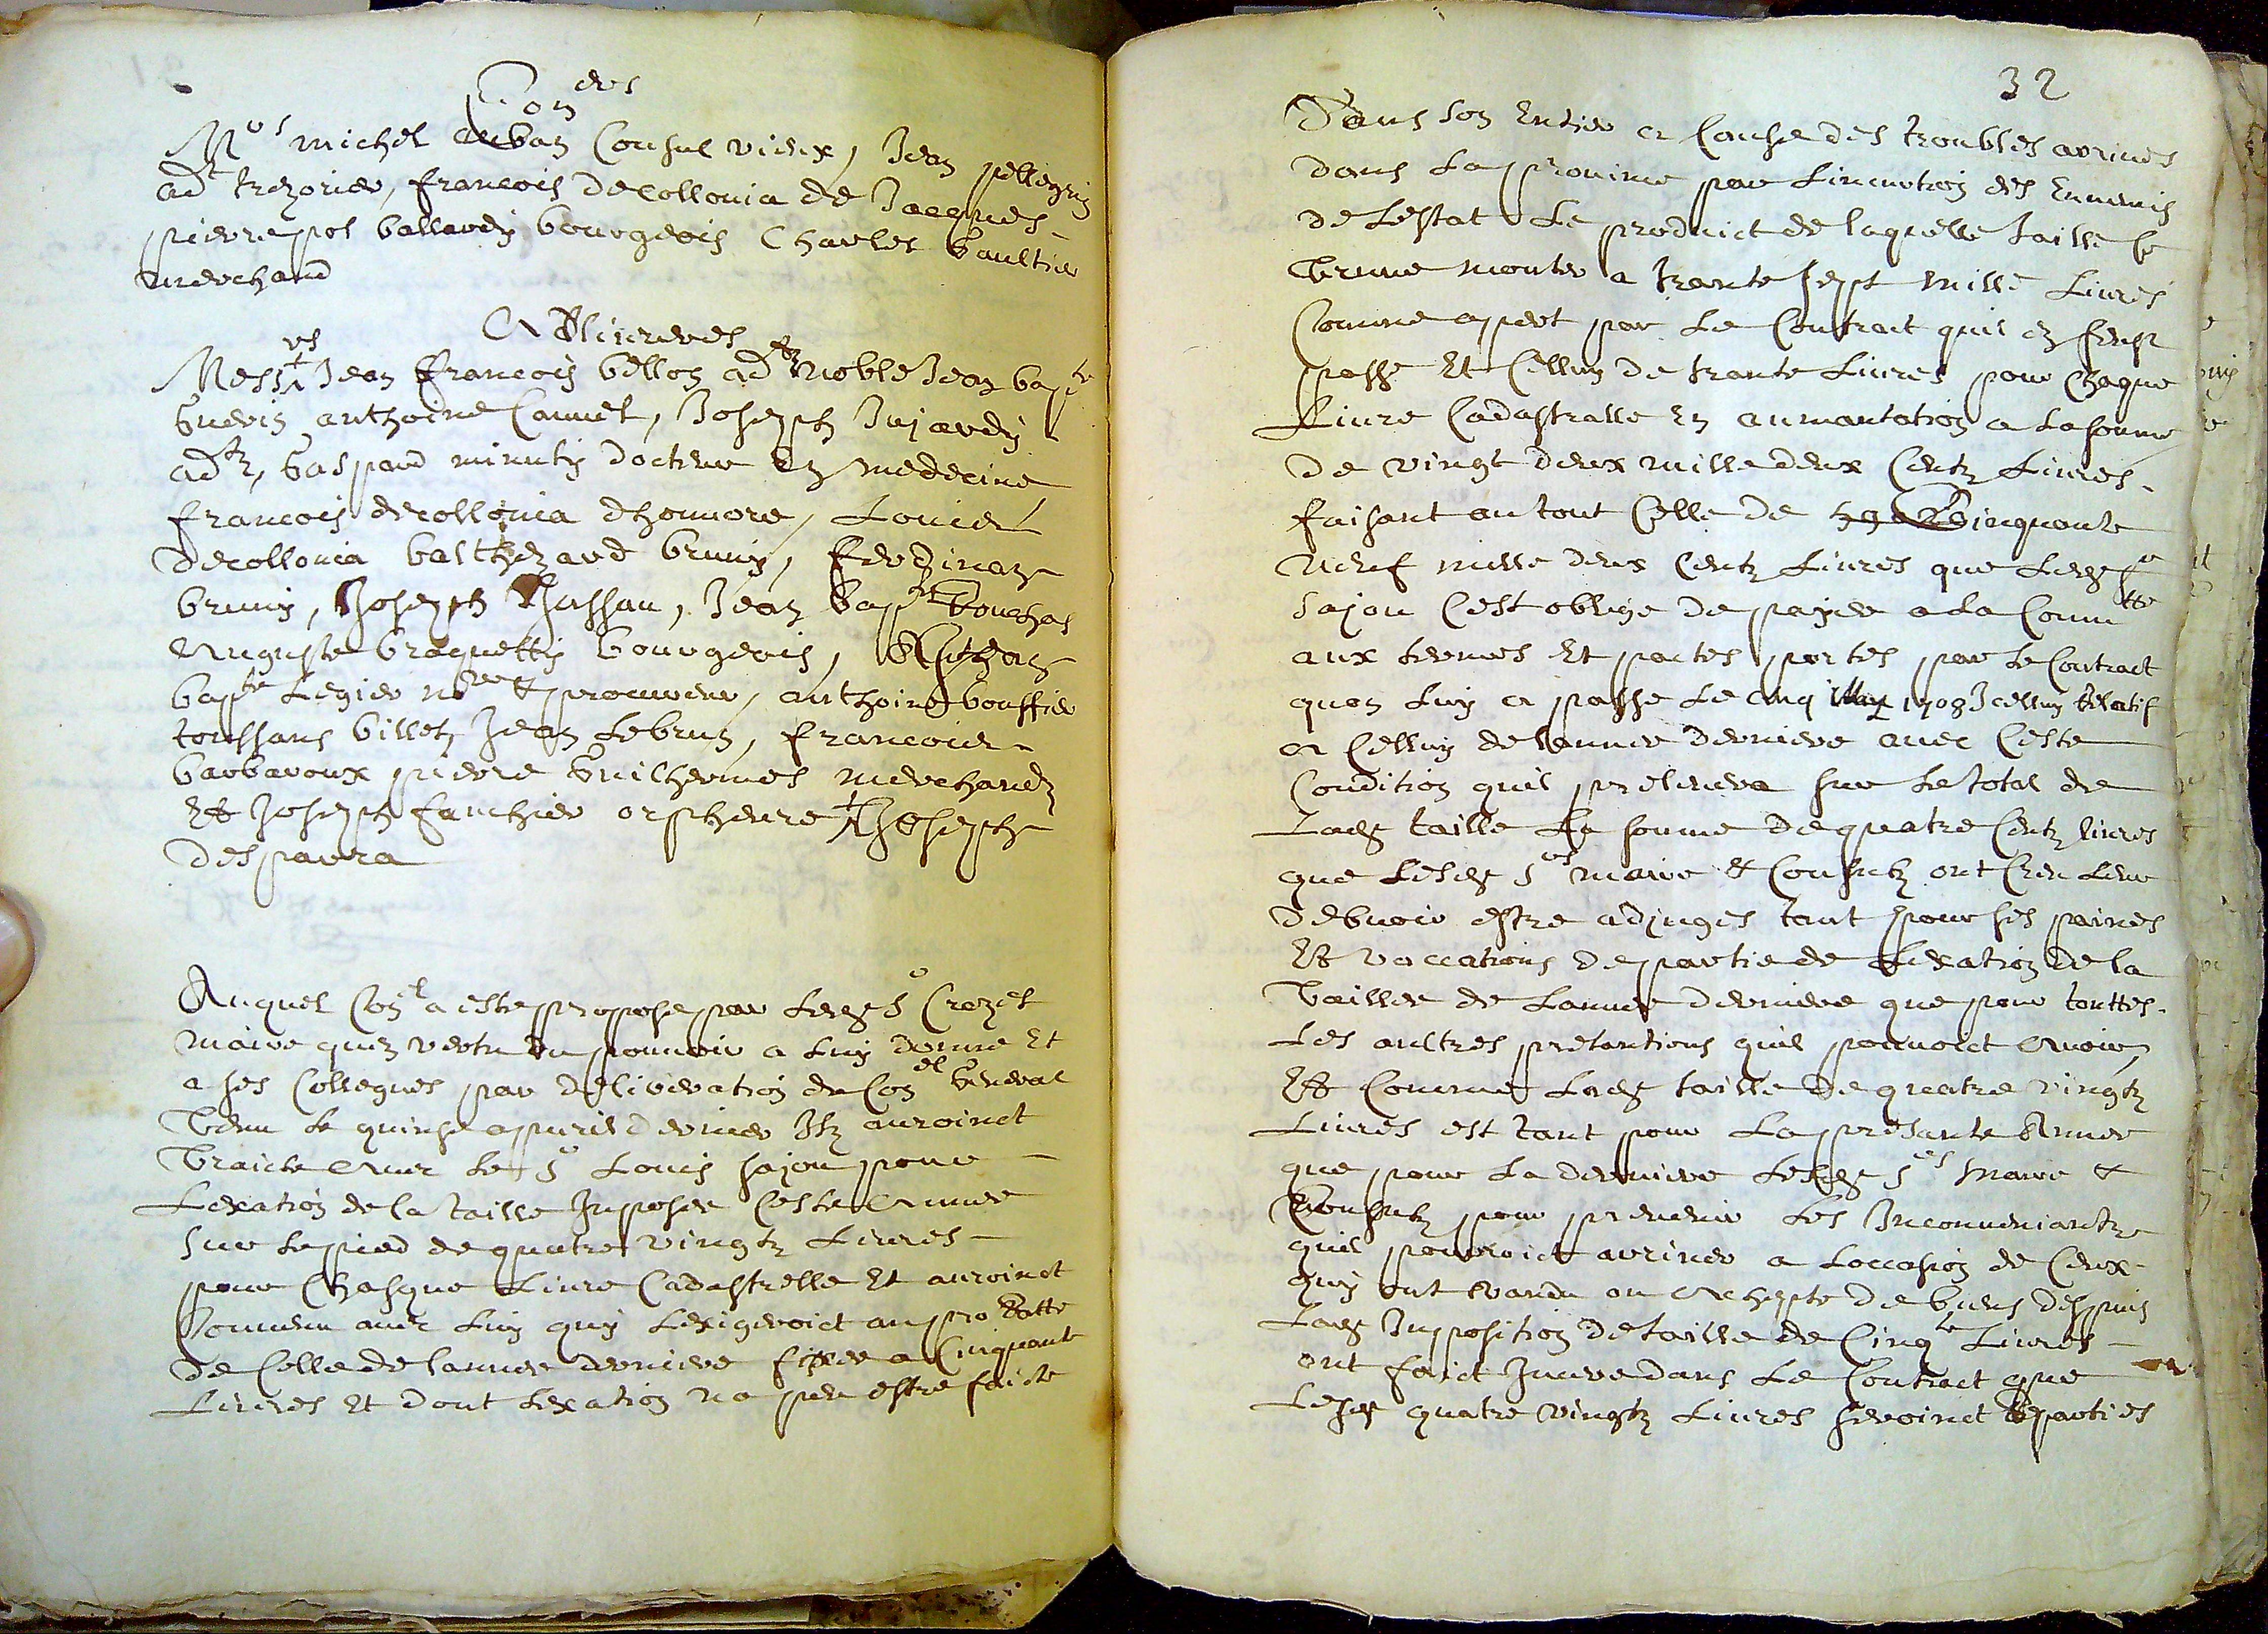 Con ers
Mrs michel auban Consul vieux, Jean pellegrin
adt trezorier, francois de collonia de Jacques
pierre pol ballardy bourgeois Charles Gaultier
merchand
Adlivreres
Messrs Jean francois bellon adt noble Jean bapte
Gueris anthoine Cannet, Joseph Jujardy
adt, Gaspard minuty docteur en medecine
francois decollonia dhonnore, Louis
decollonia balthezard bruny, ferdinand
bruny, Joseph Jassau, Jean bapte bouchas
Auguste braquetty bourgeois,
bapte Legier nore & procureur, anthoine bouffier
toussans billet Jean Lebrun, francois
barbaroux pierre Guilhermes merchands
Et Joseph fauchier orpheure Joseph
desparra
Auquel Conel a este propose par Ledt Sr Crozet
maire quen vertu du pouvoir a luy donne Et
a ses Collegues par deliberation du Conel General
tenu le quinse apvril dernier Ilz auroinct
traicte avec le Sr Louis sajou pour
Lexation de la taille Imposee Ceste Annee
sur le pied de quatre vingtz Livres
pour Chasque Livre Cadastrelle Et auroinct
Convenu avec luy quy Lexigeroict au pro Ratte
de Celle de lannee derniere fixee a Cinquante
Livres Et dont Lexation na peu estre faicte
32
Dans son Entier a Cause des troubles arrives
dans La province par Linvation des Ennemis
de Lestat Le product de laquelle taille se
treuve monter a trante sept mille Livres
Comme apert par Le Contract quil en feust
passe Et Celluy de trante Livres pour Chaque
Livre Cadastralle En aumantation a la somme
de vingt deux mille deux Centz Livres
faisant en tout Celle de Cinquante
neuf mille deux Centz Livres que Ledt Sr
sajou Cest oblige de payer a la Commte
aux termes Et pactes portes par le Contract
quon luy a passe Le cinq May 1708 Icelluy Relatif
a Celluy de lannee derniere avec Ceste
Condition quil prelevera sur Le total de
Ladt taille La somme de quatre Centz livres
que Lesdt Srs maire & Consulz ont Creu Leur
debvoir estre adjuges tant pour ses paines
Et vaccations de partie de Lexation de la
taillee de Lannee derniere que pour touttes
Les aultres pretantions quil pouvoict Avoir,
Et Comme Ladt taille de quatre vingtz
Livres est tant pour La presante Annee
que pour La derniere Lesdt Srs maire &
Consulz pour prevenir Les Inconveniantz
quil pourroict arriver a Loccasion de Ceux
quy ont vandu ou Achepte de biens despuis
Ladt Imposition de taille de Cinqte Livres
ont faict Jnserer dans Le Contract que
Lesdt quatre vingtz Livres seroinct Reparties